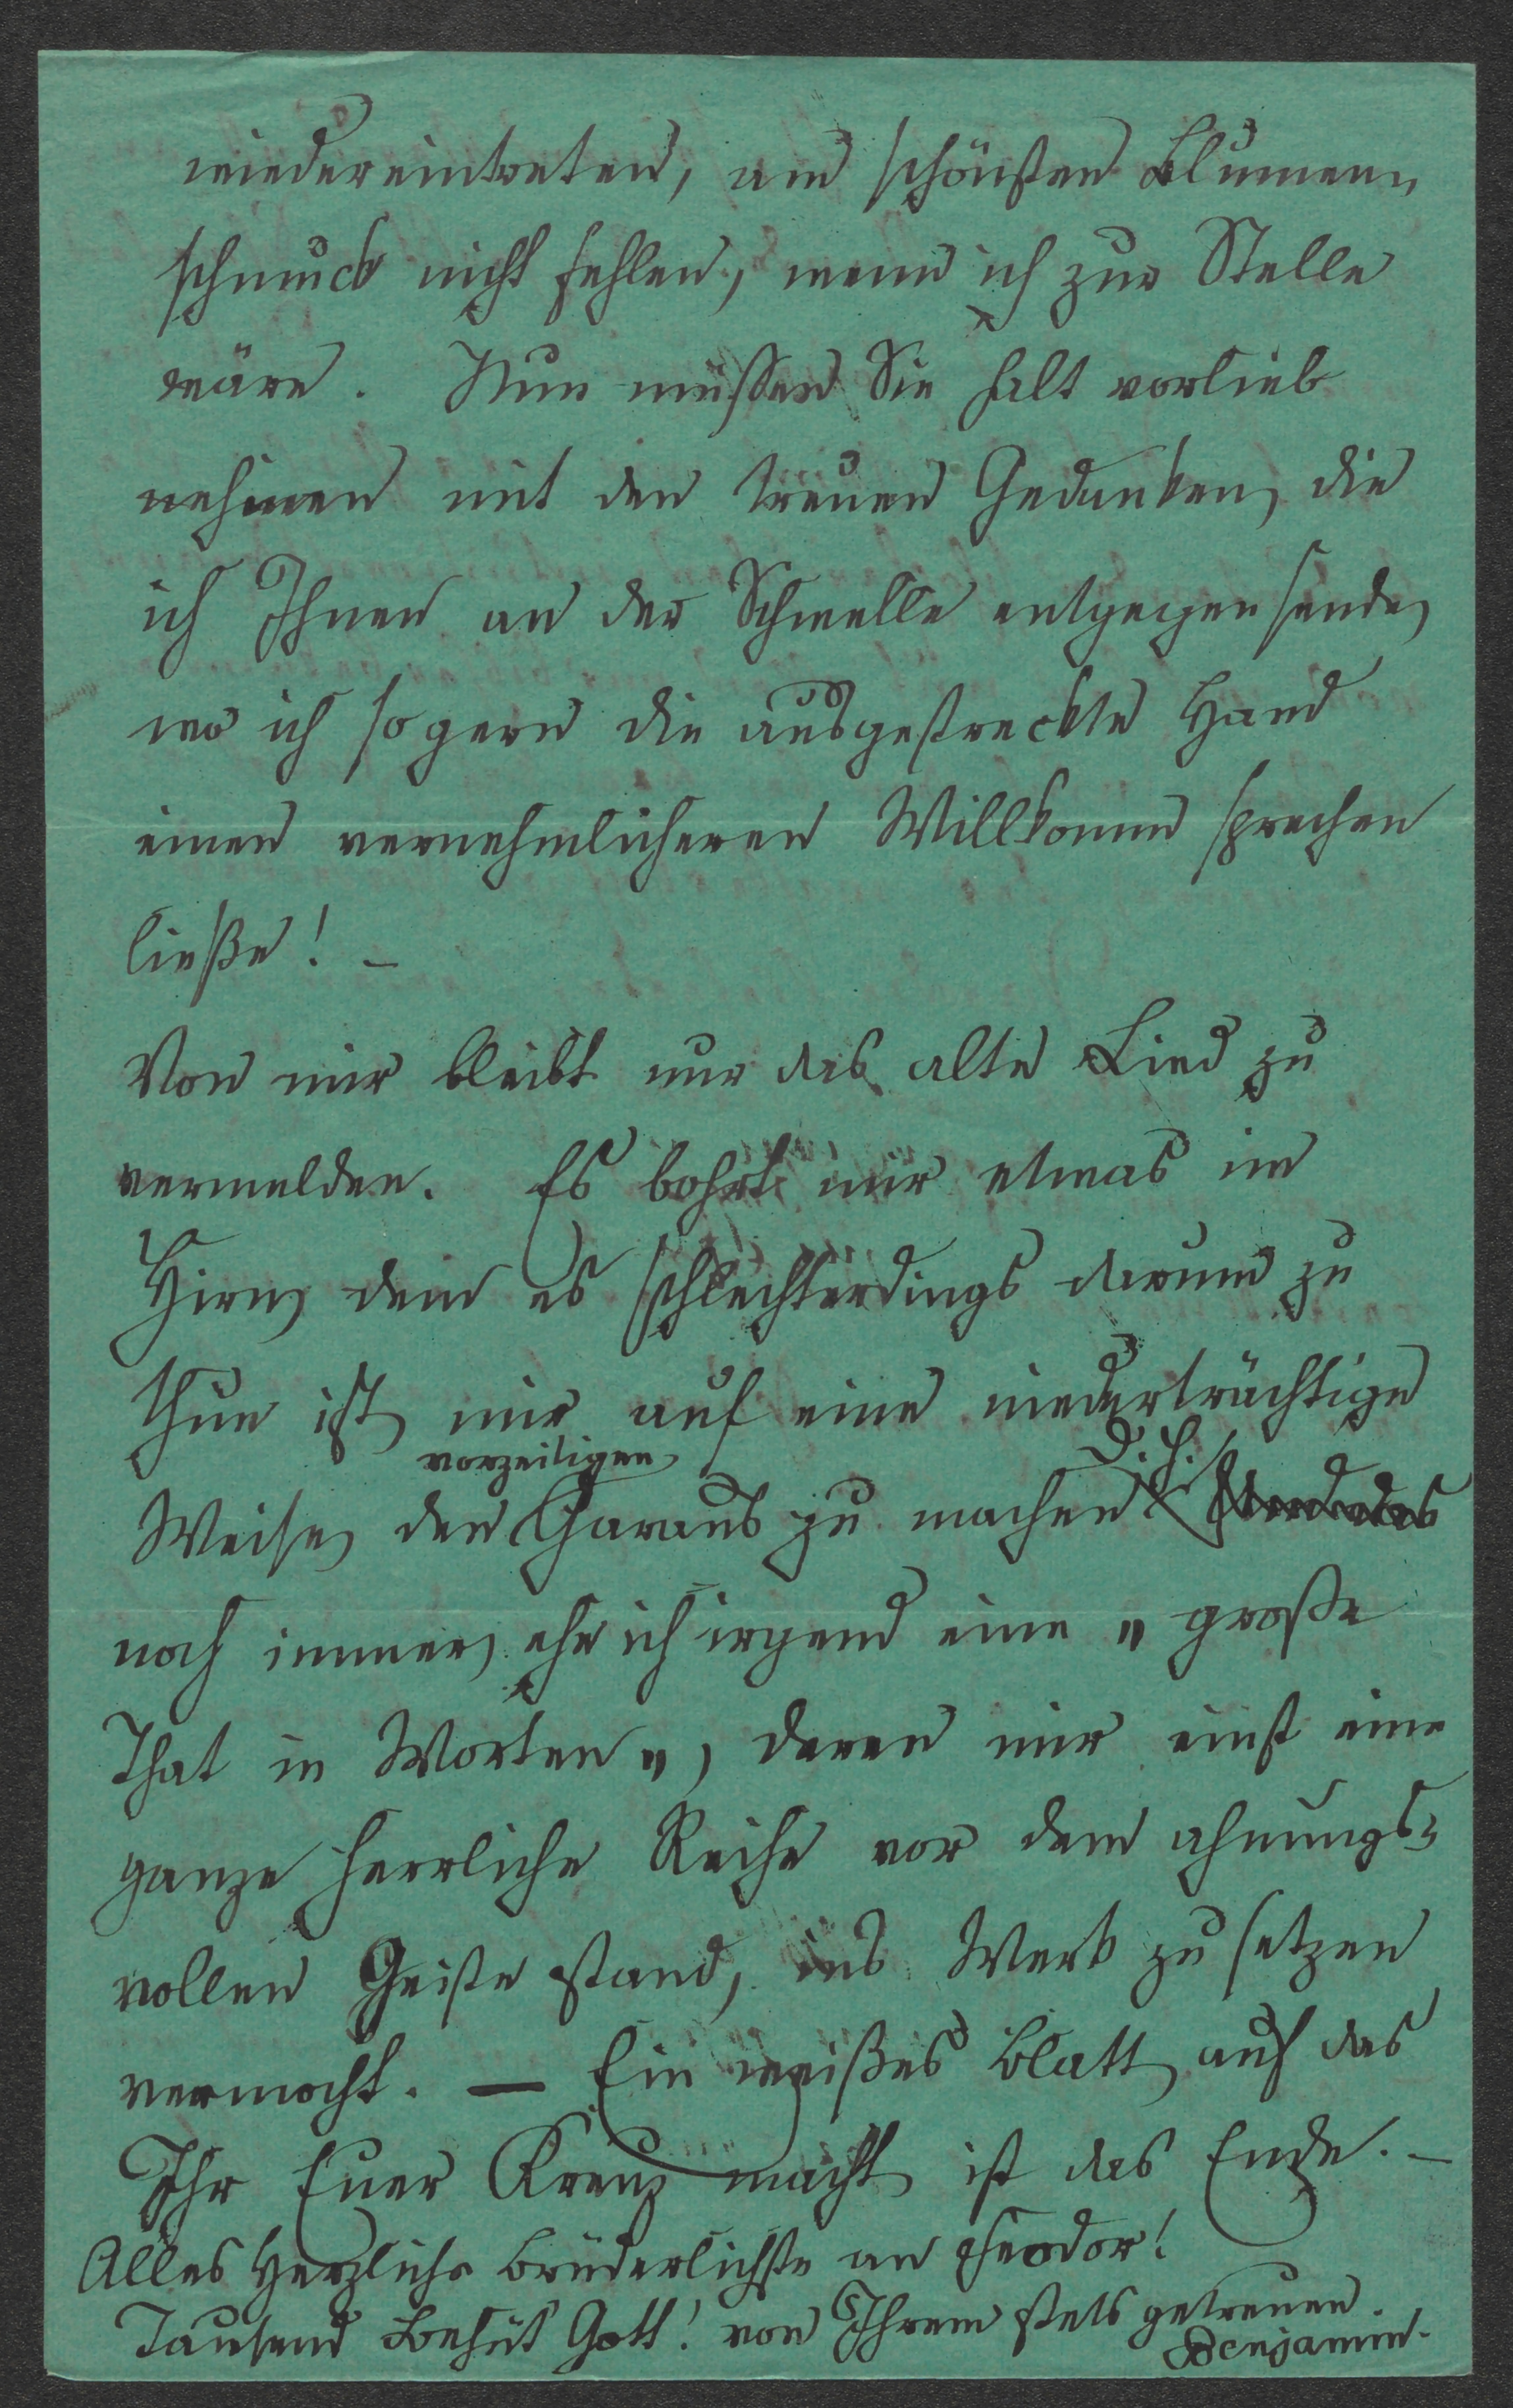 wiedereintreten, am schönsten Blumen„
schmuck nicht fehlen, wenn ich zur Stelle
wäre. Nun müssen Sie halt vorlieb
nehmen mit den treuen Gedanken, die
ich Ihnen an der Schwelle entgegensende,
wo ich so gern die ausgestreckte Hand
einen vernehmlicheren Willkomm sprechen
ließe! –
Von mir bleibt nur das alte Lied zu
vermelden. Es bohrt mir etwas im
Hirn, dem es schlechterdings darum zu
thun ist, mir auf eine niederträchtige
vorzeitigen d. h.
Weise, den Garaus zu machen
noch immer, ehe ich irgend eine „große
That in Worten„, deren mir einst eine
ganze herrliche Reihe vor dem ahnungs=
vollen Geiste stand, ins Werk zu setzen
vermocht. — Ein weißes Blatt, auf das
Ihr Euer Kreuz macht, ist das Ende. –
Alles Herzliche Brüderlichste an Theodor!
Tausend Behüt Gott! von Ihrem stets getreuen.
Benjamin.